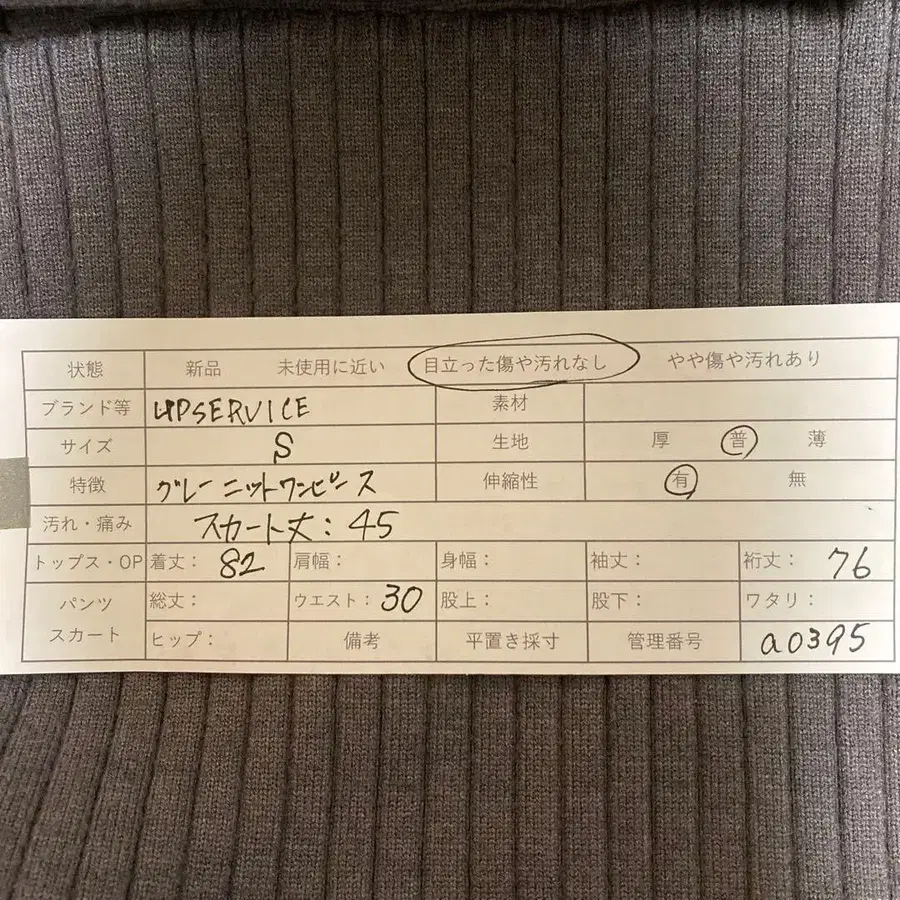 状態 新品 未使用に近い 目立った傷や汚れなし やや傷や汚れあり
ブランド等 UPSERVICE 素材
サイズ S 生地 厚 普 薄
特徴 グレーニットワンピース 伸縮性 有 無
汚れ・痛み スカート丈：45
トップス・OP 着丈： 82 肩幅： 身幅： 袖丈： 裄丈： 76
パンツ 総丈： ウエスト： 30 股上： 股下： ワタリ：
スカート ヒップ： 備考 平置き採寸 管理番号 a0395